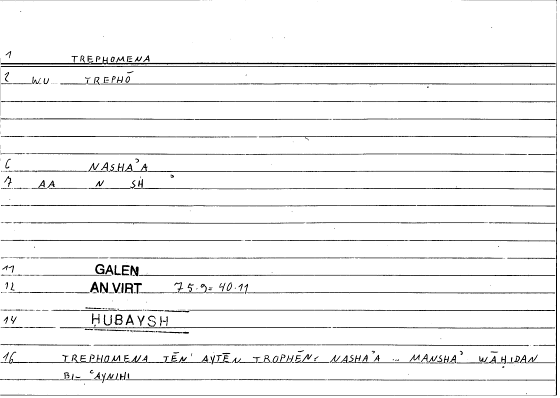 1 TREPHOMENA
2 WU TREPHŌ
6 NASHAʾA
7 AA N SHʾ
11 GALEN
12 AN VIRT 75.9= 40.11
14 ḤUBAYSH
16 TREPHOMENA TĒN AYTĒN TROPHĒN: NASHAʾA … MANSHAʾ WĀḤIDAN
BI-ʿAYNIHI